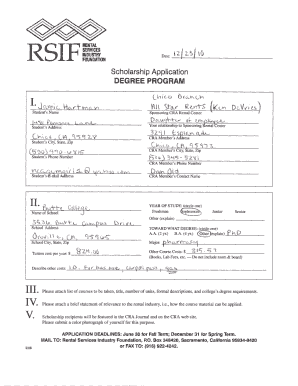 RSIF
RENTAL
SERVICES
INDUSTRY
FOUNDATION
Date 12/23/10
Scholarship Application
DEGREE PROGRAM
I. Jamie Hartman
Student's Name
Student's Address
Chico, CA, 95928
Student's City, State, Zip
Student's Phone Number
Student's E-Mail Address
Chico Branch
All Star Rents (Kim DeVries)
Sponsoring CRA Rental Center
Daughter of employee
Your relationship to Sponsoring Rental Center
3291 Esplanade
CRA Member's Address
Chico, CA, 95973
CRA Member's City, State, Zip
CRA Member's Phone Number
CRA Member's Contact Name
II. Butte College
Name of School
3536 Butte Campus Drive
School Address
Oroville, CA, 95965
School City, State, Zip
Tuition costs per year $
Describe other costs
YEAR OF STUDY (circle one)
Freshman Sophomore Junior Senior
Other (explain)
TOWARD WHAT DEGREE (circle one)
A.A. (2 yr.) B.A. (4 yr.) Other (explain) PhD
Major pharmacy
Other Course Costs: $
(Books, Lab Fees, etc. – Do not include room & board)
III. Please attach list of courses to be taken, title, number of units, formal descriptions, and college's degree requirement.
IV. Please attach a brief statement of relevance to the rental industry, i.e., how the course material can be applied.
V. Scholarship recipients will be featured in the CRA Journal and on the CRA web site.
Please submit a color photograph of yourself for this purpose.
APPLICATION DEADLINES: June 30 for Fall Term; December 31 for Spring Term.
MAIL TO: Rental Services Industry Foundation, P.O. Box 340420, Sacramento, California 95834-0420
or FAX TO: (916) 922-4242.